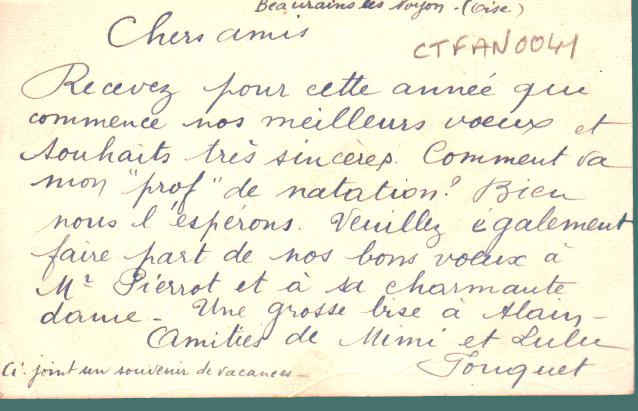 Beaurains les Noyon - (Oise)
Chers amis
CTFAN0041
Recevez pour cette année qui
commence nos meilleurs voeux et
souhaits très sincères. Comment va
mon "prof" de natation? Bien
nous l'espérons. Veuillez également
faire part de nos bons voeux à
Mr Pierrot et à sa charmante
dame - Une grosse bise à Alain -
Amitiés de Mimi et Lulu
Fouquet
Ci-joint un souvenir de vacances -